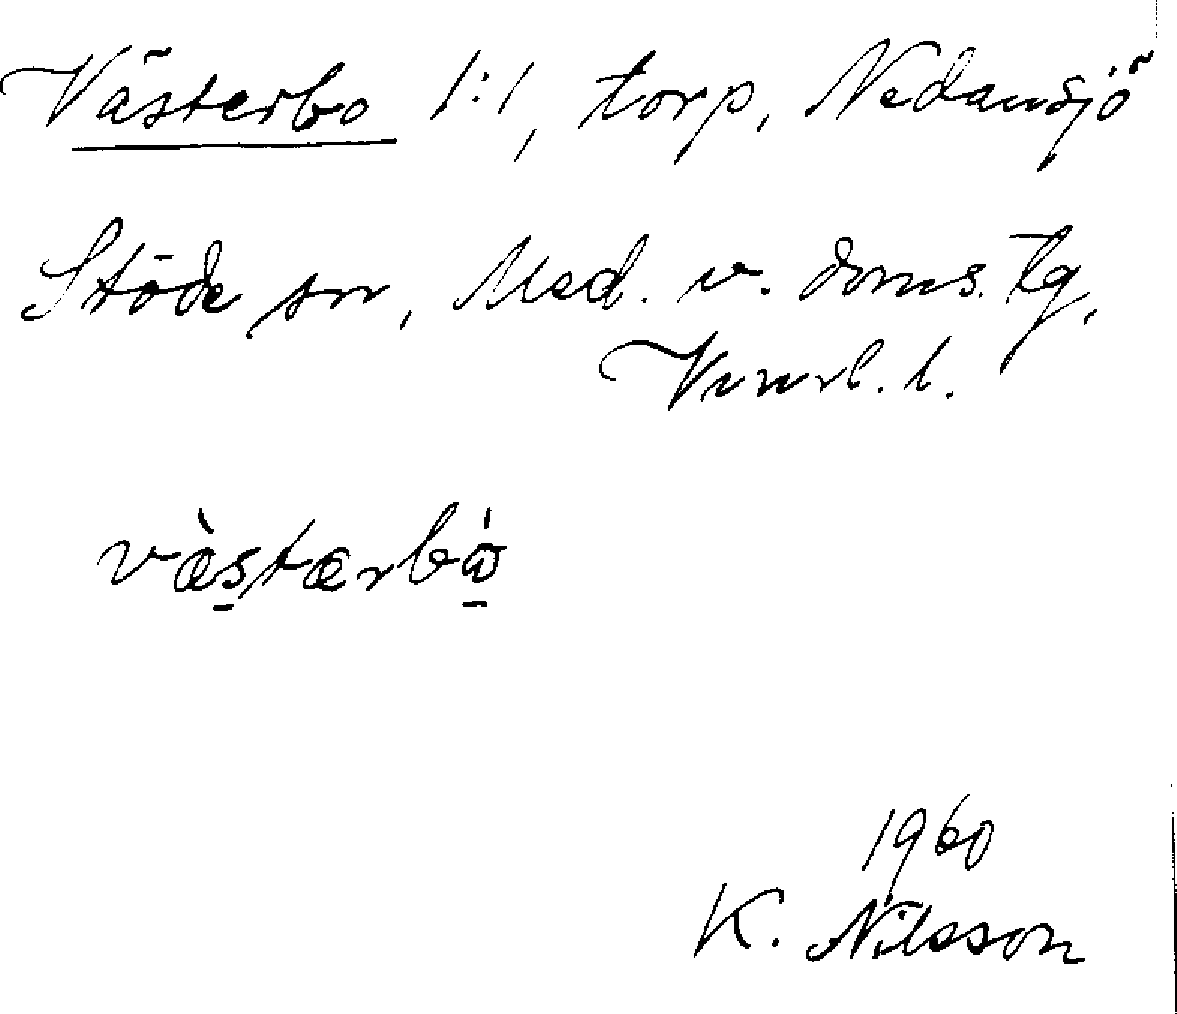 Västerbo 1:1, torp, Nedansjö
Stöde sn, Med. v. doms. tg,
Vnrl. l.
væ̀stærbω̇
1960
K. Nilsson